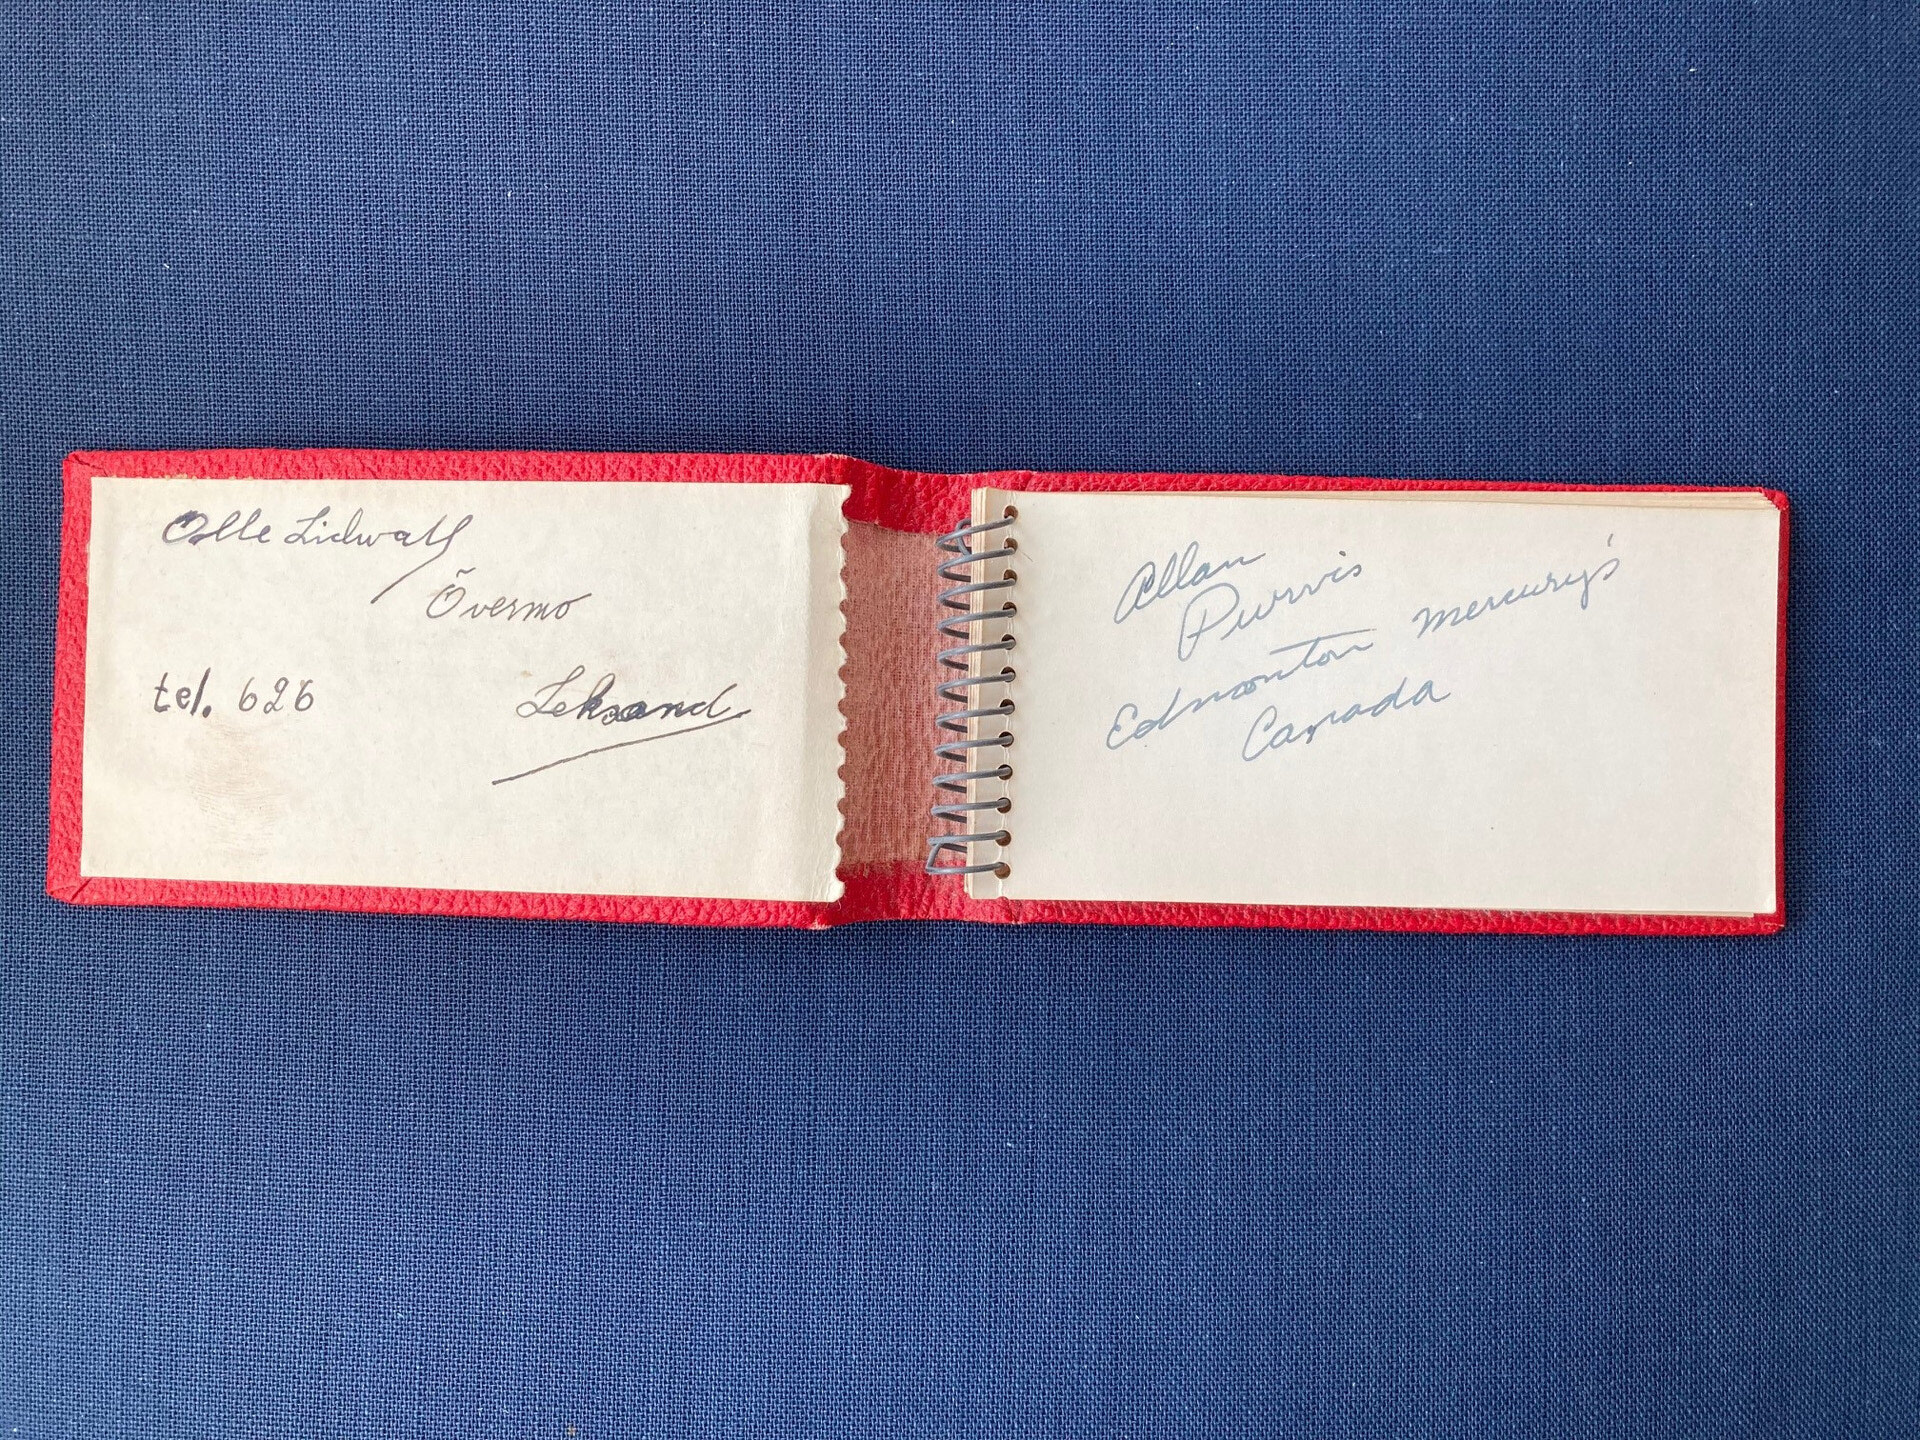 Olle Lidwall
Övermo
tel. 626 Leksand
Allan
Purvis
Edmonton Mercury's
Canada